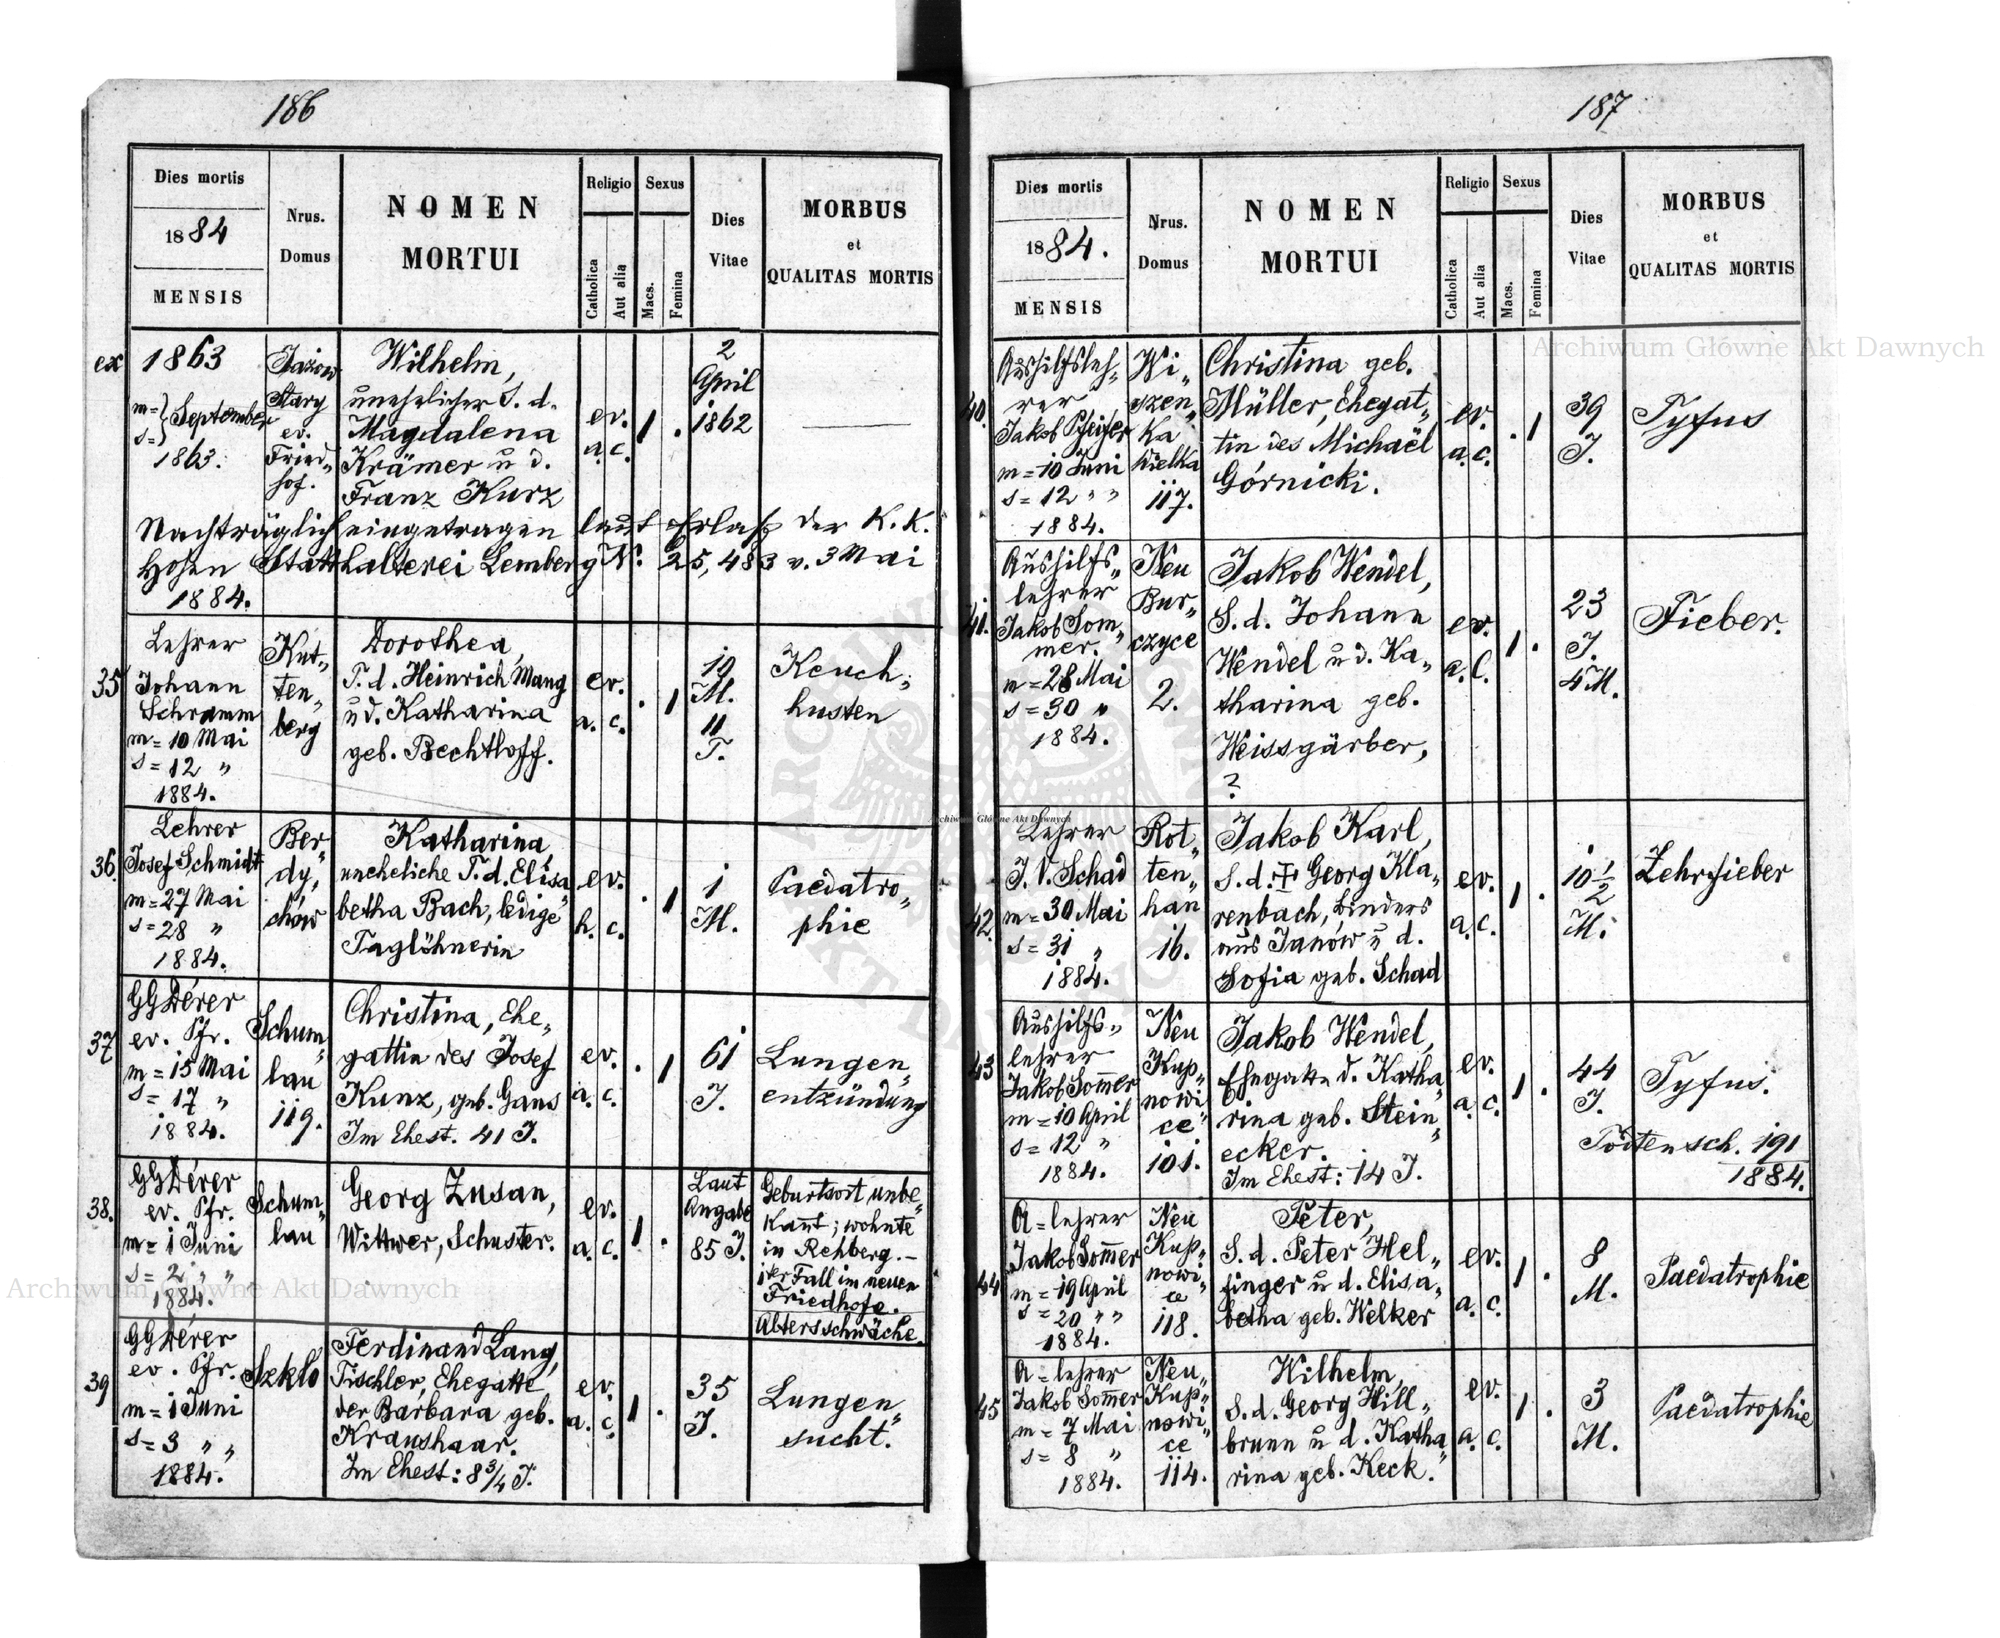 186
Dies mortis
1884
MENSIS
Nrus.
Domus
NOMEN
MORTUI
Religio
Catholica
Aut alia
Sexus
Macs.
Femina
Dies
Vitae
MORBUS
et
QUALITAS MORTIS
ex
1863
m=
s=
September
1863.
Jazow
Stary
ev.
Fried=
hof.
Wilhelm,
unehelicher S. d.
Magdalena
Krämer u. d.
Franz Kurz
ev.
a. c.
1
.
2
April
1862
Nachträglich eingetragen laut Erlaß der K. K.
Hohen Statthalterei Lemberg N: 25,483 v. 3 Mai
1884.
35
Lehrer
Johann
Schramm
m = 10 Mai
s = 12 "
1884.
Kut=
ten=
berg
Dorothea,
T. d. Heinrich Mang
u d. Katharina
geb. Bechtloff.
ev.
a. c.
.
1
10
M.
11
T.
Keuch=
husten
36.
Lehrer
Josef Schmidt
m = 27 Mai
s = 28 "
1884.
Ber=
dy=
chów
Katharina
uneheliche T. d. Elisa=
betha Bach, ledige
Taglöhnerin
ev.
h. c.
.
1
1
M.
Paedatro=
phie
37
GGDérer
ev. Pfr.
m = 15 Mai
s = 17 "
1884.
Schum=
lau
119.
Christina, Ehe=
gattin des Josef
Kunz, geb. Gans
Im Ehest. 41 J.
ev.
a. c.
.
1
61
J.
Lungen=
entzündung
38.
GGDérer
ev. Pfr.
m = 1 Juni
s = 2 " "
1884.
Schum=
lau
Georg Zusan,
Wittwer, Schuster.
ev.
a. c.
1
.
Laut
Angabe
85 J.
Geburtsort unbe=
kannt; wohnte
in Rehberg. –
1ter Fall im neuen
Friedhofe.
Altersschwäche.
39
GGDérer
ev. Pfr.
m = 1 Juni
s = 3 " "
1884.
Szkło
Ferdinand Lang,
Tischler, Ehegatte
der Barbara geb.
Kraushaar.
Im Ehest: 8 3/4 J.
ev.
a. c.
1
.
35
J.
Lungen=
sucht.
187
Dies mortis
1884.
MENSIS
Nrus.
Domus
NOMEN
MORTUI
Religio
Catholica
Aut alia
Sexus
Macs.
Femina
Dies
Vitae
MORBUS
et
QUALITAS MORTIS
40.
Aushilfsleh=
rer
Jakob Pfeifer
m = 10 Juni
s = 12 " "
1884.
Wi=
szen=
ka
Wielka
117.
Christina geb.
Müller, Ehegat=
tin des Michaël
Górnicki.
ev.
a. c.
.
1
39
J.
Tyfus
41.
Aushilfs=
lehrer
Jakob Som=
mer.
m = 28 Mai
s = 30 "
1884.
Neu
Bur=
czyce
2.
Jakob Wendel,
S. d. Johann
Wendel u d. Ka=
tharina geb.
Weissgärber,
?
ev.
a. c.
1
.
23
J.
4 M.
Fieber.
42.
Lehrer
J. V. Schad
m = 30 Mai
s = 31 "
1884.
Rot=
ten=
han
16.
Jakob Karl,
S. d. ✝ Georg Kla=
renbach, Binders
aus Janów u d.
Sofia geb. Schad
ev.
a. c.
1
.
10 1/2
M.
Zehrfieber
43
Aushilfs=
lehrer
Jakob Sommer
m = 10 April
s = 12 "
1884.
Neu
Kup=
nowi=
ce
101.
Jakob Wendel,
Ehegatte d. Katha=
rina geb. Stein=
ecker.
Im Ehest: 14 J.
ev.
a. c.
1
.
44
J.
Tyfus.
Todtensch. 191
1884.
44
A = lehrer
Jakob Sommer
m = 19 April
s = 20 " "
1884.
Neu
Kup=
nowi=
ce
118.
Peter,
S. d. Peter Hel=
finger u d. Elisa=
betha geb. Welker
ev.
a. c.
1
.
8
M.
Paedatrophie
45
A = lehrer
Jakob Sommer
m = 7 Mai
s = 8 "
1884.
Neu=
Kup=
nowi=
ce
114.
Wilhelm,
S. d. Georg Hill=
brunn u d. Katha=
rina geb. Keck.
ev.
a. c.
1
.
3
M.
Paedatrophie
Archiwum Główne Akt Dawnych
Archiwum Główne Akt Dawnych
Archiwum Główne Akt Dawnych
ARCHIWUM GŁÓWNE AKT DAWNYCH